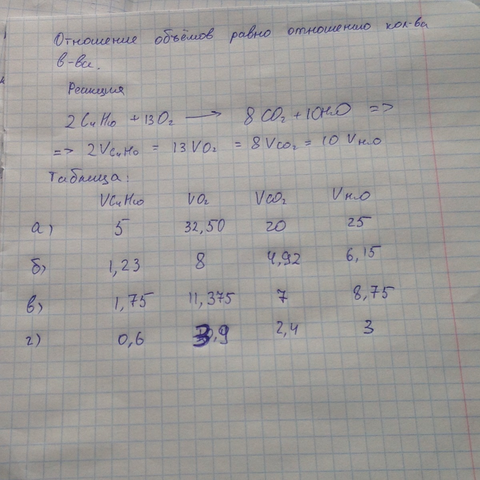 Отношение объёмов равно отношению кол-ва
в-ва.
Реакция
2C₄H₁₀ + 13O₂ → 8CO₂ + 10H₂O =>
=> 2VC₄H₁₀ = 13VO₂ = 8VCO₂ = 10VH₂O
Таблица:
VC₄H₁₀ VO₂ VCO₂ VH₂O
а) 5 32,50 20 25
б) 1,23 8 4,92 6,15
в) 1,75 11,375 7 8,75
г) 0,6 3,9 2,4 3